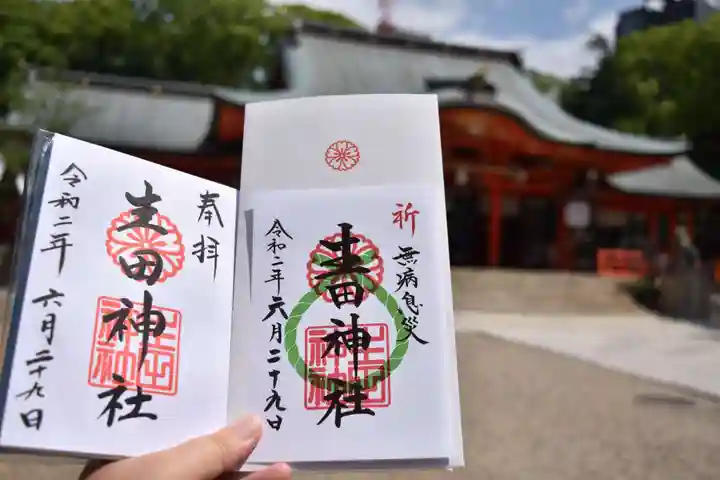 奉拝
生田神社
令和二年 六月二十九日
祈
無病息災
生田神社
令和二年六月二十九日